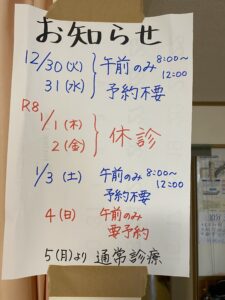 お知らせ
12/30(火) 午前のみ 8:00〜12:00
31(水) 予約不要
R8
1/1(木) 休診
2(金)
1/3(土) 午前のみ 8:00〜12:00
予約不要
4(日) 午前のみ
要予約
5(月)より 通常診療